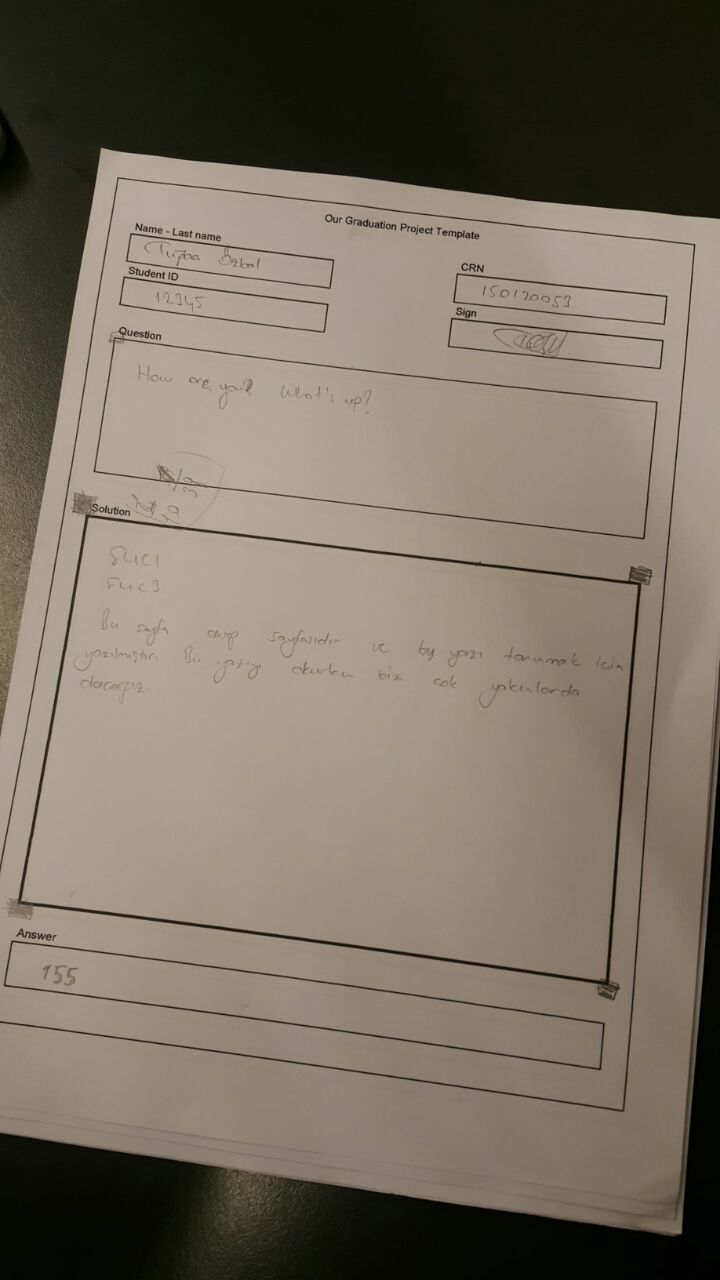 Our Graduation Project Template
Name - Last name
Tuğba Özbal
CRN
150120053
Student ID
12345
Sign
Question
How are you? What's up?
Solution
SUC1
SUC3
Bu sayfa cevap sayfasıdır ve bu yazı tanınmak için
yazılmıştır Bu yazıyı okurken biz çok yakınlarda
olacağız
Answer
155